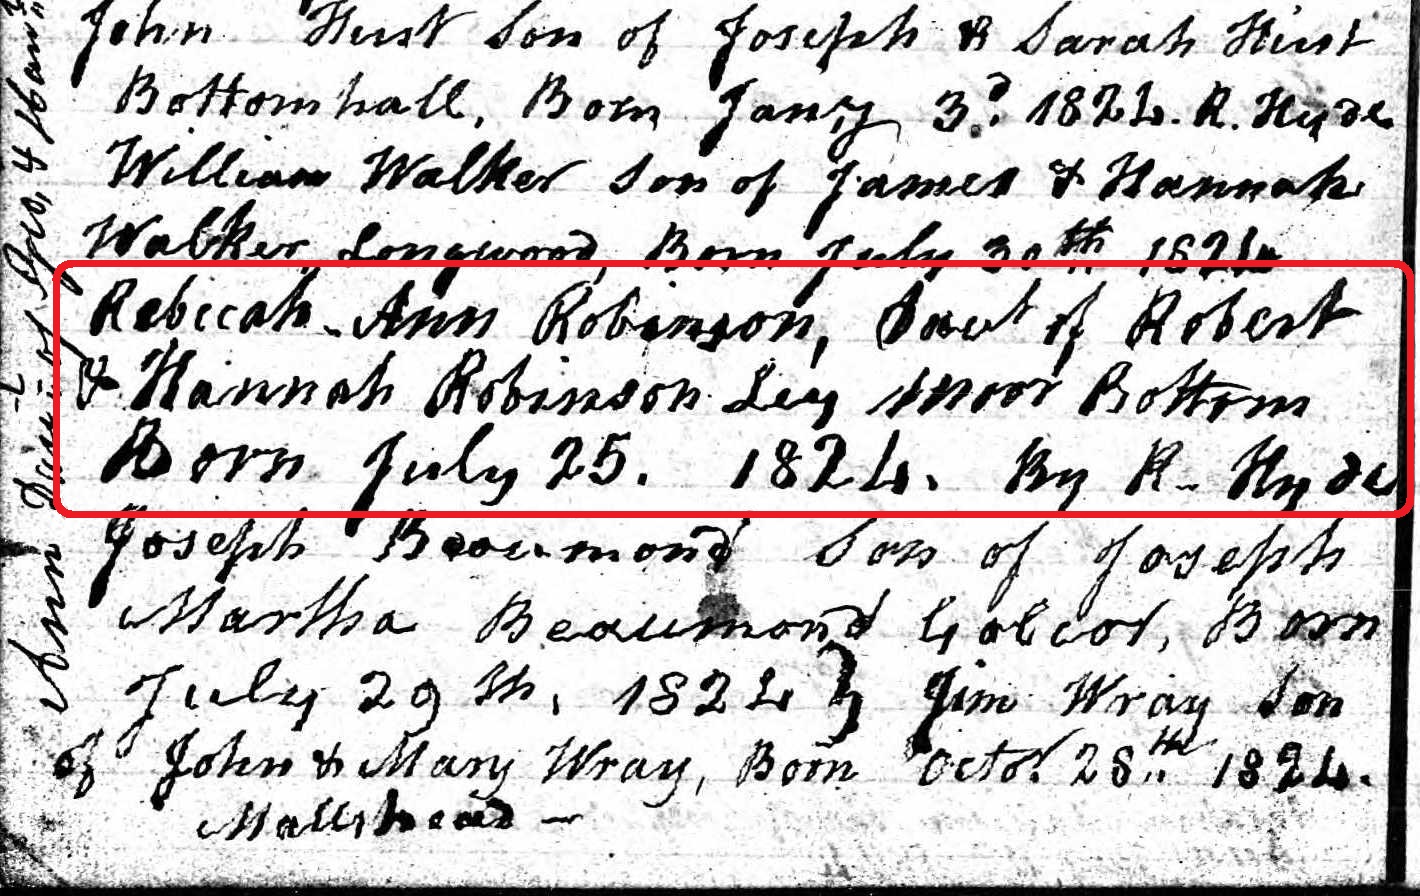 John Hirst Son of Joseph & Sarah Hirst
Bottomhall, Born Jany 3d. 1824. R. Hyde
William Walker Son of James & Hannah
Walker Longwood, Born July 30th 1824
Rebecah Ann Robinson, Daut of Robert
& Hannah Robinson Ley Moor Bottom
Born July 25. 1824. By R. Hyde
Joseph Beaumond Son of Joseph
Martha Beaumond Golcor, Born
July 29th, 1824 } Jim Wray Son
of John & Mary Wray, Born Octor 28th 1824.
Ann of Geo, &